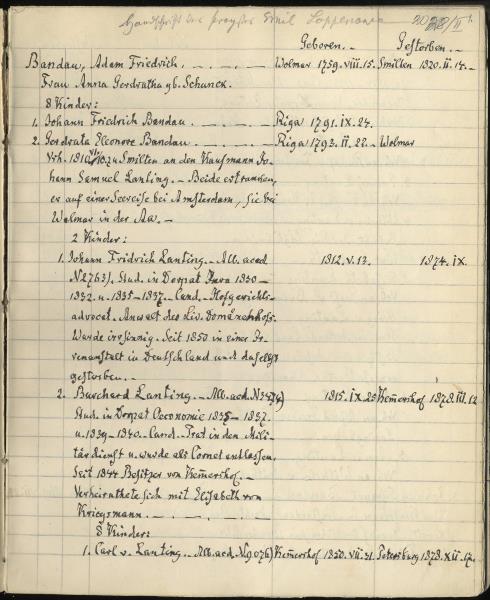 Handschrift des Emil
Geboren. – Gestorben. –
Bandau, Adam Friedrich. – . – . – Wolmar 1759. VIII. 15. Smilten 1820. II. 14. –
Frau Anna Gerdrutha gb. Schunck.
8 Kinder:
1. Johann Friedrich Bandau. Riga 1791. IX. 24.
2. Gerdruta Eleonore Bandau. Riga 1793. II. 22. – Wolmar
Vrh. 1810 zu Smilten an den Kaufmann Jo-
hann Samuel Lanting. – Beide ertranken,
er auf einer Seereise bei Amsterdam, sie bei
Wolmar in der Aa. –
2 Kinder:
1. Johann Fridrich Lanting. – Alb. acad. 1812. V. 13. 1874. IX.
N 2763). Stud. in Dorpat Jura 1830 –
1832. u. 1835 – 1837. Cand. – Hofgerichts-
advocat. Anwalt des Liv. Domänenhofs.
Wurde irrsinnig. Seit 1850 in einer Ir-
renanstalt in Deutschland und daselbst
gestorben. –
2. Burchard Lanting. – Alb. acad. N 3474) 1815. IX. 25 Kemershof 1878. III. 12
Stud. in Dorpat Oeconomie 1835 – 1837.
u. 1839 – 1840. Cand. – Trat in den Mili-
tärdienst u. wurde als Cornet entlassen.
Seit 1844 Besitzer von Kemershof. –
Verheirathete sich mit Elisabeth von
Kriegsmann. – . – . – . –
8 Kinder:
1. Carl v. Lanting. – Alb. acd. N 9076) Kemershof 1850. VII. 31. Petersburg 1878. XII. 12.